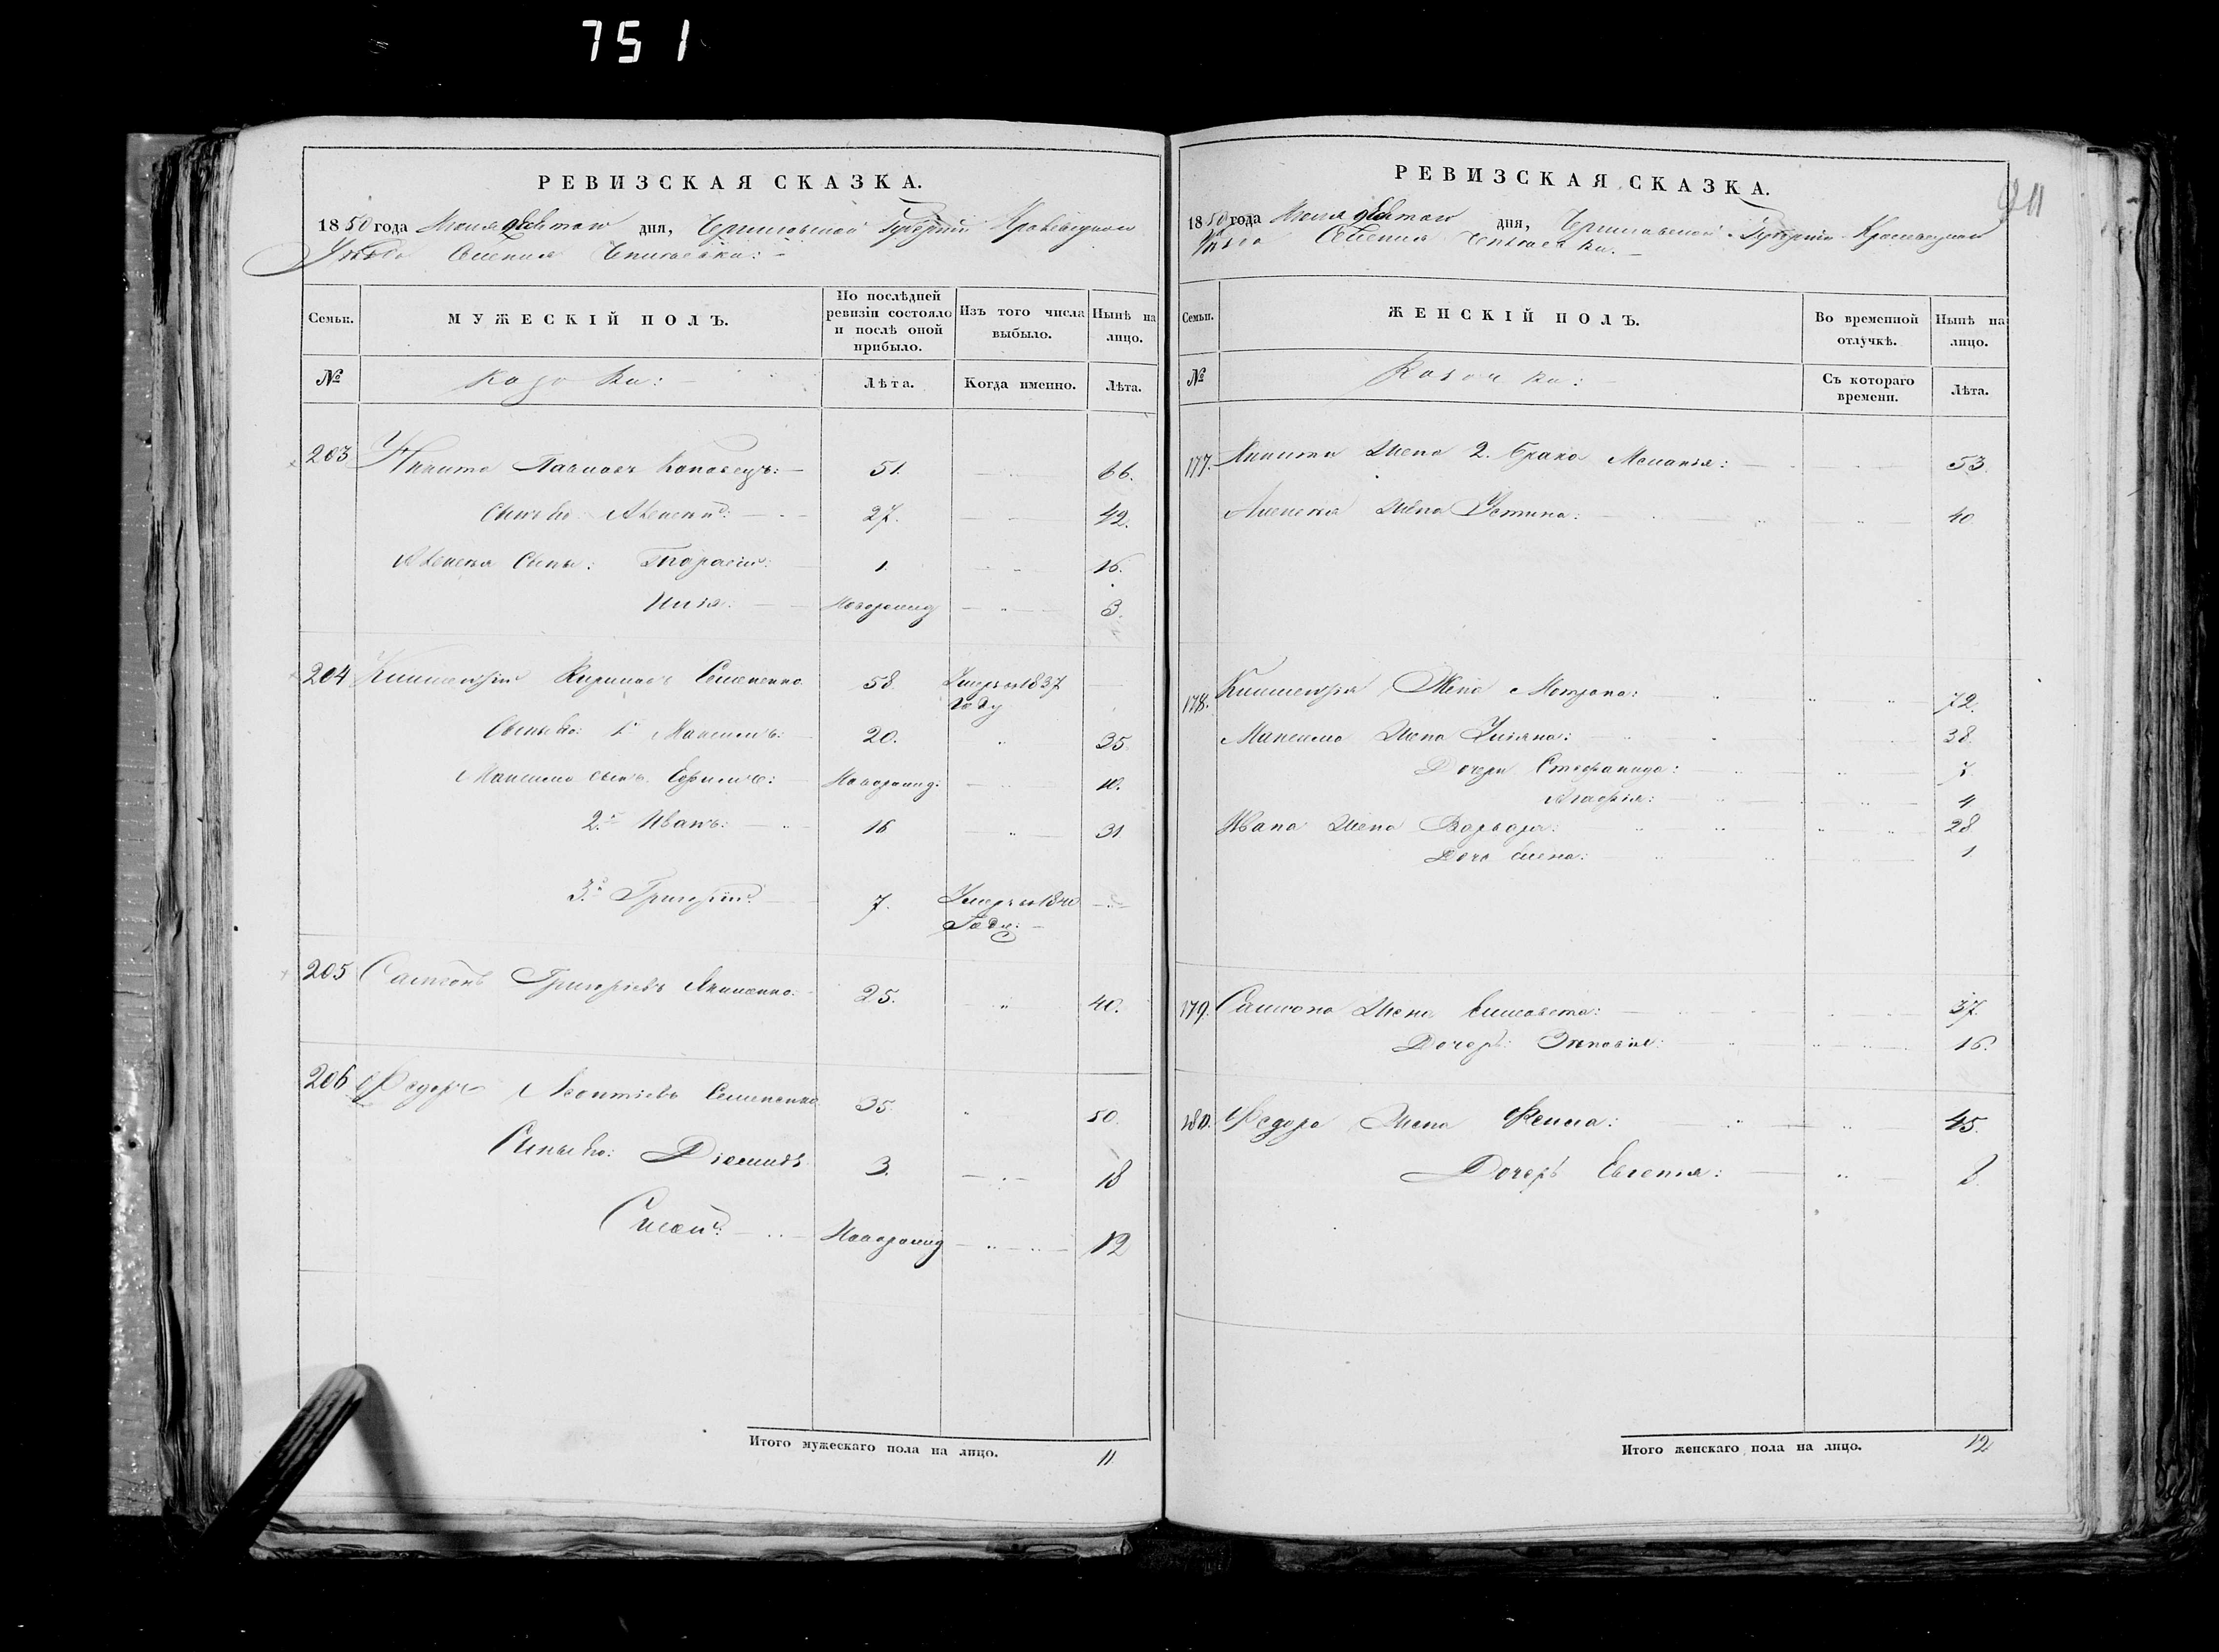 751
РЕВИЗСКАЯ СКАЗКА.
1850 года дня, Черниговской Губерніи Кролевецкаго
Уѣзда Селенія
Семьи.
МУЖЕСКІЙ ПОЛЪ.
По послѣдней ревизіи состояло и послѣ оной прибыло.
Изъ того числа выбыло.
Нынѣ на лицо.
№
Казаки:
Лѣта.
Когда именно.
Лѣта.
203 Никита Павловъ 51. 66.
Сынъ его Алексѣй: 27. 42.
Алексѣя Сыны: Тарасій: 1. 16.
Илія: Новорожд 3.
204 Кириловъ Семененко 58. Умеръ въ 1837 Году
Сыны его: 1й Максимъ: 20. 35.
Максима сынъ Ефимъ: Новорожд: 10.
2й Иванъ: 16 31
3й Григорій: 7. Умеръ въ 1840 Году:
205 Самсонъ Григоріевъ Якименко. 25. 40.
206 Федоръ Леонтіевъ Семененко 35. 50.
Сыны его: Діомидъ 3. 18
Сисой: Новорожд 12
Итого мужескаго пола на лицо. 11
РЕВИЗСКАЯ СКАЗКА.
911
1850 года дня, Черниговской Губерніи Кролевецкаго
Уѣзда Селенія
Семьи.
ЖЕНСКІЙ ПОЛЪ.
Во временной отлучкѣ.
Нынѣ на лицо.
№
Казачки:
Съ котораго времени.
Лѣта.
177. Никиты Жена 2. брака Меланія: 53.
Алексѣя Жена Устина: 40.
178. Жена Мотрона: 72.
Максима Жена Уліяна: 38.
Дочери Стефанида: 7.
Агафія: 4
Ивана Жена Варвара: 28
Дочь Елена: 1.
179. Самсона Жена Елисавета: 37.
Дочерь: Зиновія: 16.
180. Федора Жена Фекла: 45.
Дочерь Евгенія: 8.
Итого женскаго пола на лицо. 12